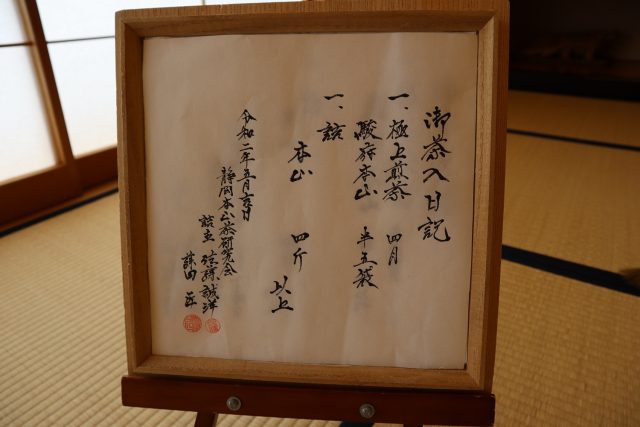 御茶入日記
一、極上煎茶 四月
駿府本山 半五袋
一、詰
本山 四斤
以上
令和二年五月吉日
静岡本山茶研究会
詰主